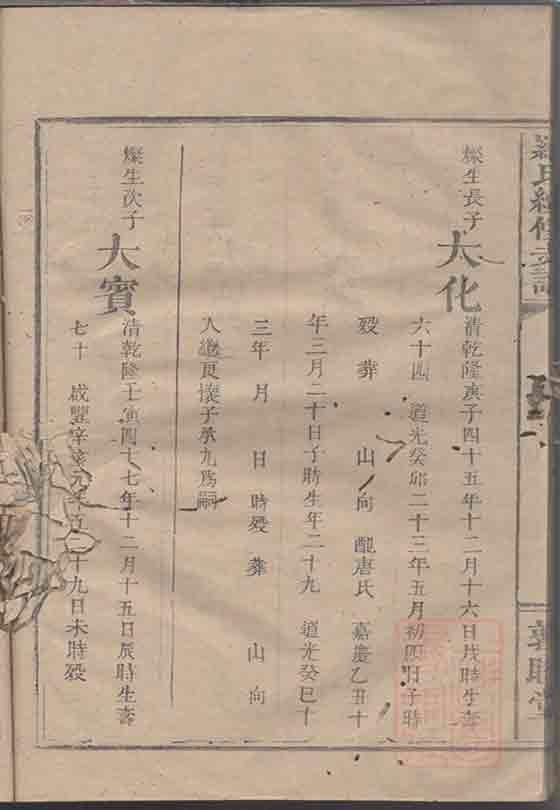 氏續修支譜
燦生長子
大化
清乾隆庚子四十五年十二月十六日戌時生壽
六十四 道光癸卯二十三年五月初四日子時
歿葬 山 向 配唐氏 嘉慶乙丑十
年三月二十日子時生年二十九 道光癸巳十
三年 月 日 時歿葬 山 向
入繼 懷子承九為嗣
燦生次子
大賓
清乾隆壬寅四十七年十二月十五日辰時生壽
七十 咸豐辛亥元年 二十九日未時歿